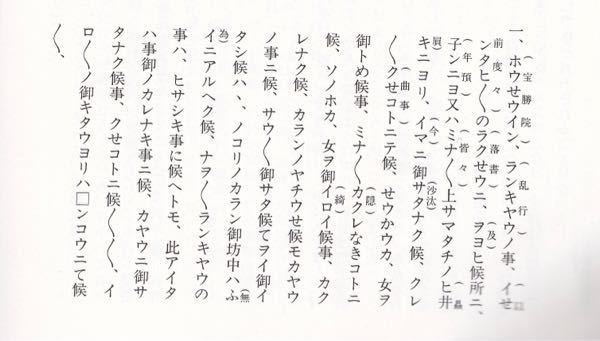 一、ホウせウイン、ランキヤウノ事、イせ
（宝勝院）（乱行）
ンタヒ〳〵ノラクせウニ、ヲヨヒ候所ニ、
（前度々）（落書）（及）
子ンニヨ又ハミナ〳〵上サマタチノヒ井
（年預）（皆々）
キニヨリ、イマニ御サタナク候、クレ
（今）（沙汰）
〳〵クせコトニテ候、せウかウカ、女ヲ
（曲事）
御トめ候事、ミナ〳〵カクレなきコトニ
（隠）
候、ソノホカ、女ヲ御イロイ候事、カク
（綺）
レナク候、カランノヤチウせ候モカヤウ
ノ事ニ候、サウ〳〵御サタ候てヲイ御イ
タシ候ハヽ、ノコリノカラン御坊中ハふ
（為）（無）
イニアルヘク候、ナヲ〳〵ランキヤウの
事ハ、ヒサシキ事に候ヘトモ、此アイタ
ハ事御ノカレナキ事ニ候、カヤウニ御サ
タナク候事、クせコトニ候〳〵〳〵、イ
ロ〳〵ノ御キタウヨリハ□ンコウニて候
〳〵、